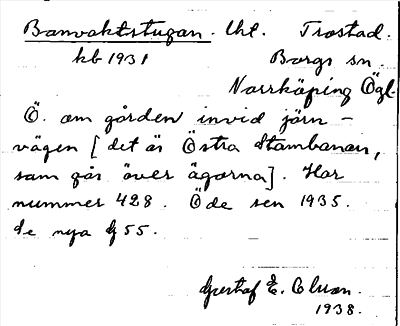 Banvaktstugan. Lht. Trostad.
kb 1931 Borgs sn.
Norrköping Ögl.
Ö. om gården invid järn-
vägen [det är Östra Stambanan,
som går över ägorna]. Har
nummer 428. Öde sen 1935.
de nya G 55.
Gustaf E.
1938.